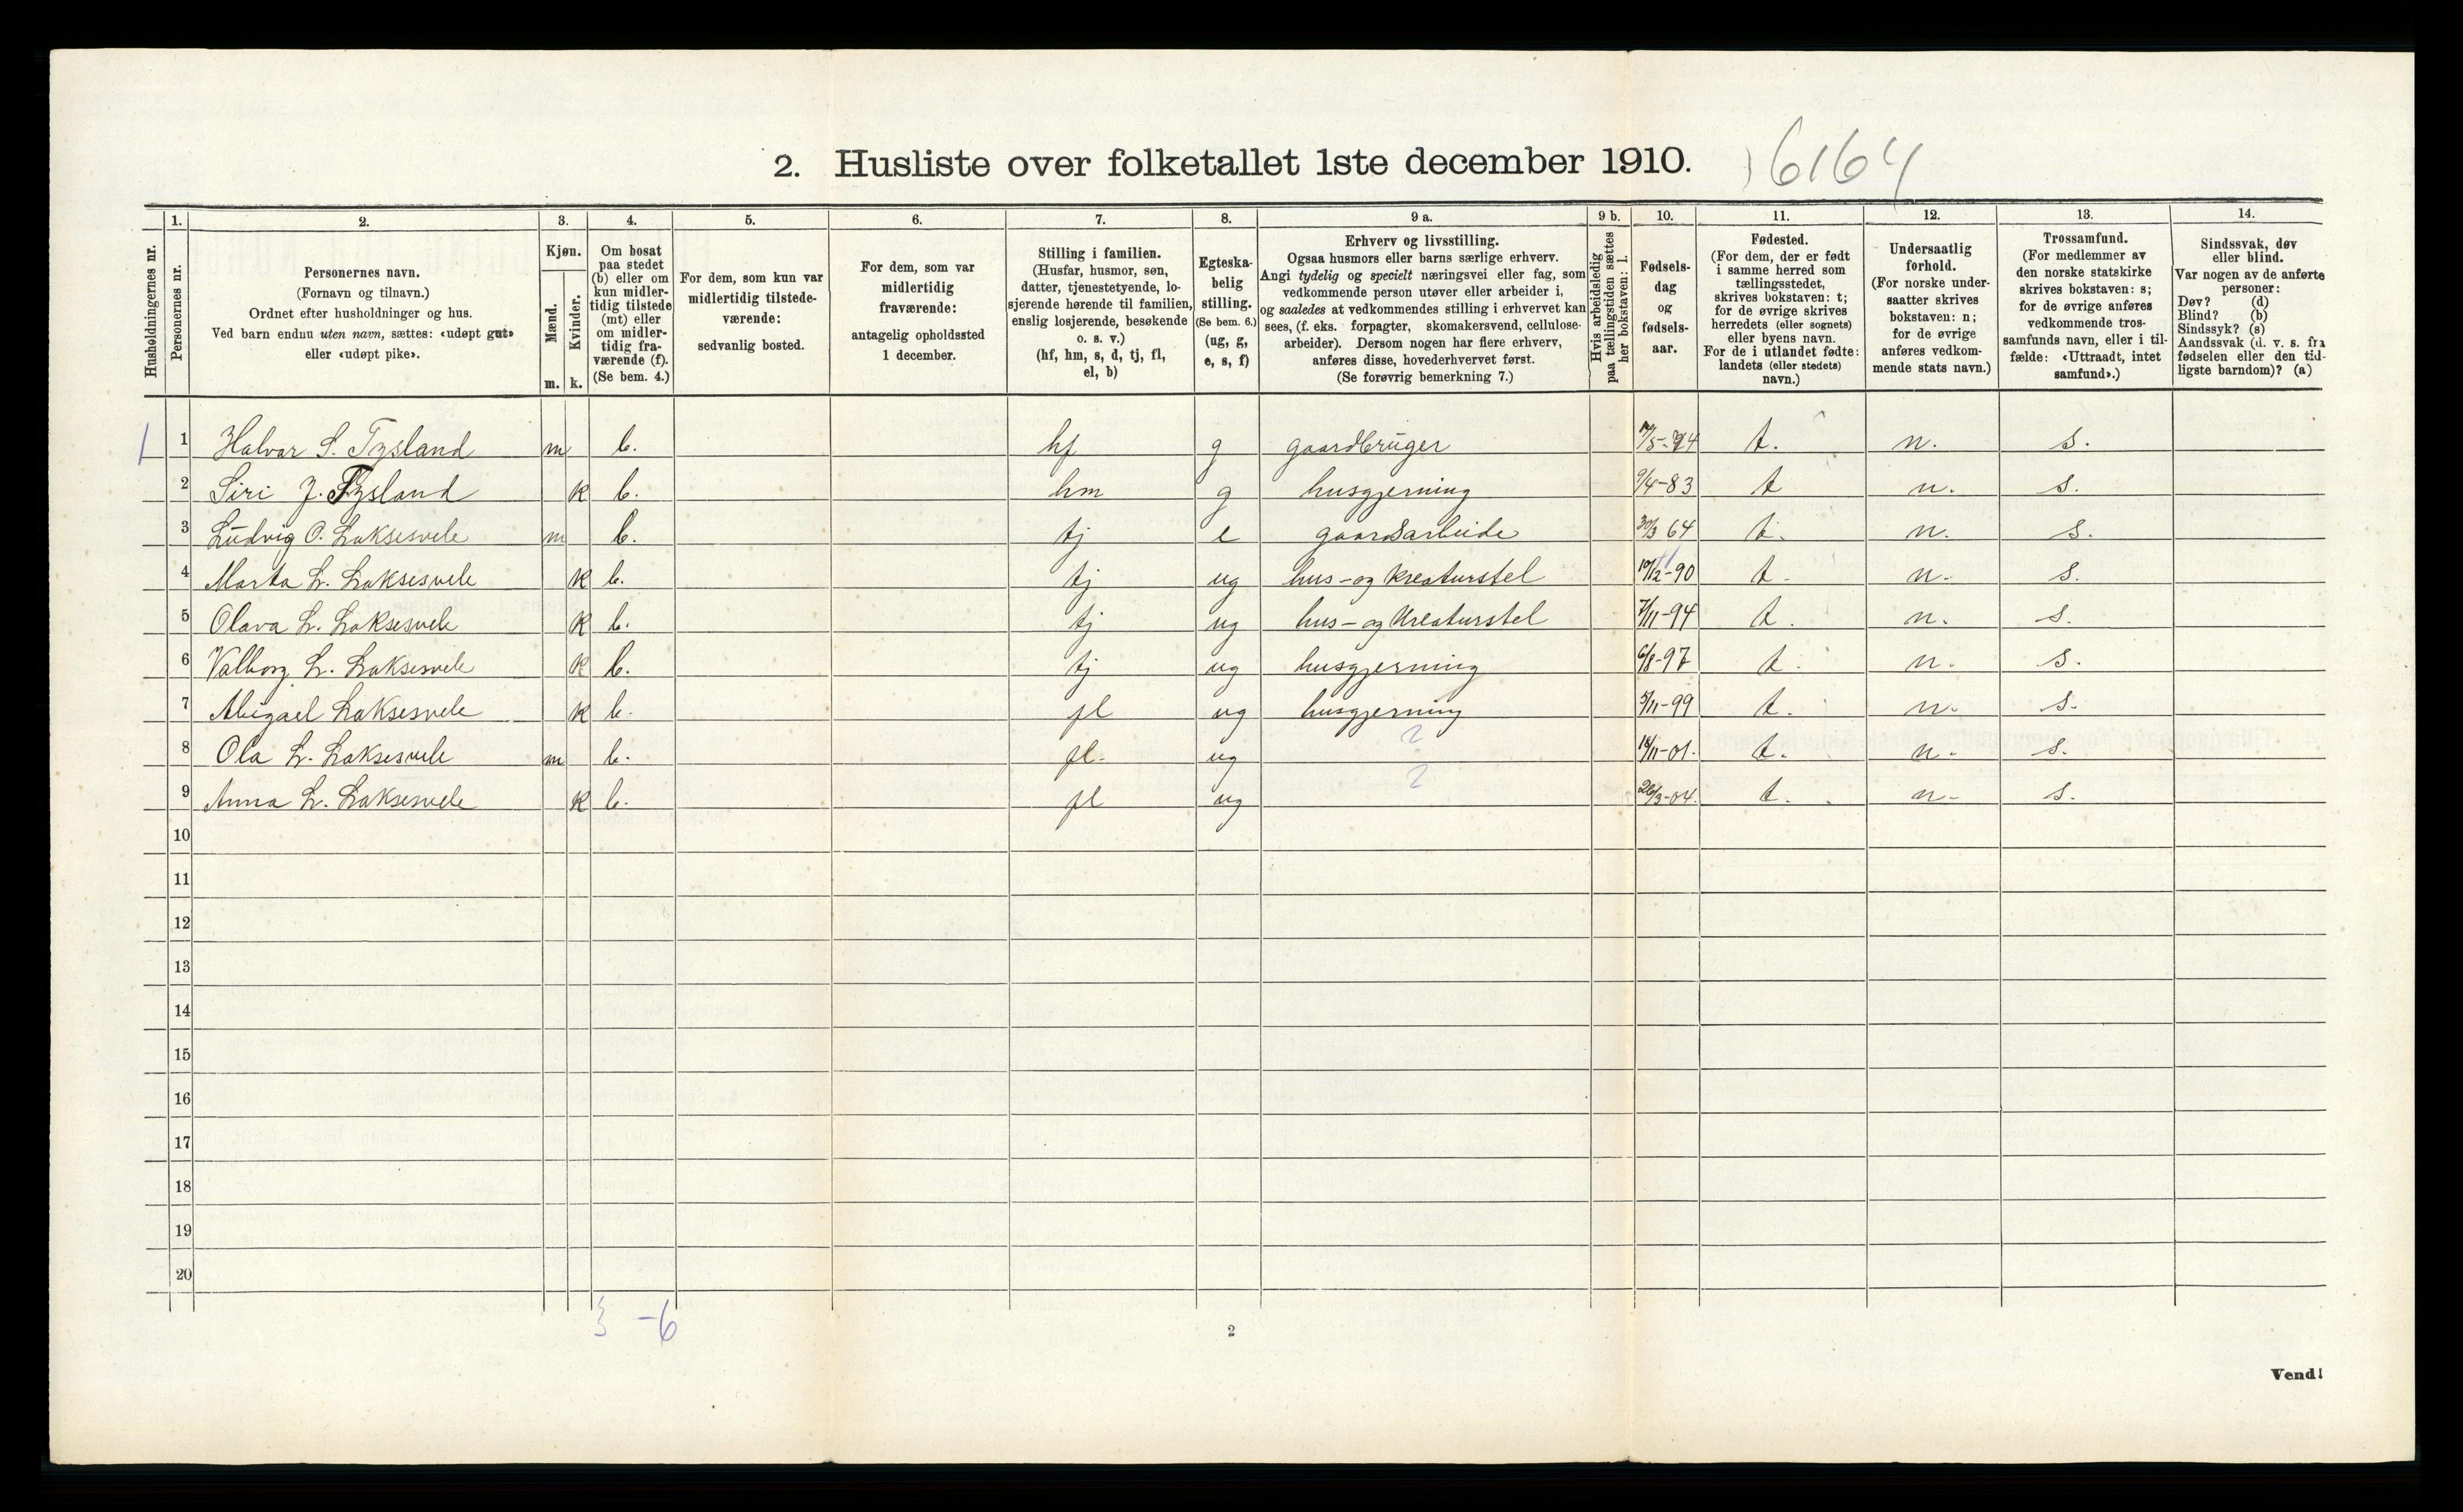 2. Husliste over folketallet 1ste december 1910. 6164
1. 2. 3. 4. 5. 6. 7. 8. 9 a. 9 b. 10. 11. 12. 13. 14.
Husholdningernes nr.
Personernes nr.
Personernes navn.
(Fornavn og tilnavn.)
Ordnet efter husholdninger og hus.
Ved barn endnu uten navn, sættes: «udøpt gut»
eller «udøpt pike».
Kjøn.
Mænd.
Kvinder.
m. k.
Om bosat
paa stedet
(b) eller om
kun midler-
tidig tilstede
(mt) eller
om midler-
tidig fra-
værende (f).
(Se bem. 4.)
For dem, som kun var
midlertidig tilstede-
værende:
sedvanlig bosted.
For dem, som var
midlertidig
fraværende:
antagelig opholdssted
1 december.
Stilling i familien.
(Husfar, husmor, søn,
datter, tjenestetyende, lo-
sjerende hørende til familien,
enslig losjerende, besøkende
o. s. v.)
(hf, hm, s, d, tj, fl,
el, b)
Egteska-
belig
stilling.
(Se bem. 6.)
(ug, g,
e, s, f)
Erhverv og livsstilling.
Ogsaa husmors eller barns særlige erhverv.
Angi tydelig og specielt næringsvei eller fag, som
vedkommende person utøver eller arbeider i,
og saaledes at vedkommendes stilling i erhvervet kan
sees, (f. eks. forpagter, skomakersvend, cellulose-
arbeider). Dersom nogen har flere erhverv,
anføres disse, hovederhvervet først.
(Se forøvrig bemerkning 7.)
Hvis arbeidsledig
paa tællingstiden sættes
her bokstaven: l.
Fødsels-
dag
og
fødsels-
aar.
Fødested.
(For dem, der er født
i samme herred som
tællingsstedet,
skrives bokstaven: t;
for de øvrige skrives
herredets (eller sognets)
eller byens navn.
For de i utlandet fødte:
landets (eller stedets)
navn.)
Undersaatlig
forhold.
(For norske under-
saatter skrives
bokstaven: n;
for de øvrige
anføres vedkom-
mende stats navn.)
Trossamfund.
(For medlemmer av
den norske statskirke
skrives bokstaven: s;
for de øvrige anføres
vedkommende tros-
samfunds navn, eller i til-
fælde: «Uttraadt, intet
samfund».)
Sindssvak, døv
eller blind.
Var nogen av de anførte
personer:
Døv? (d)
Blind? (b)
Sindssyk? (s)
Aandssvak (d. v. s. fra
fødselen eller den tid-
ligste barndom)? (a)
1 1 Halvar S. Tysland m b. hf g gaardbruger t. n. s.
2 Siri J. Tysland k b. hm g husgjerning 9/4-83 t n. s.
3 Ludvig O. Laksesvele m b. tj e gaardsarbeide 30/3 64 t. n. s.
4 Marta L. Laksesvele k b. tj ug hus- og kreaturstel 10/12-90 t. n. s.
5 Olava L. Laksesvele k b. tj ug hus- og kreaturstel 7/11-94 t. n. s.
6 Valborg L. Laksesvele k b. tj ug husgjerning 6/8-97 t. n. s.
7 Abigael Laksesvele k b. fl ug husgjerning 5/11-99 t. n. s.
8 Ola L. Laksesvele m b. fl. ug 2 18/11-01. t. n. s.
9 Anna L. Laksesvele k b. fl ug 2 26/3-04. t. n. s.
10
11
12
13
14
15
16
17
18
19
20
3 -6
2
Vend!